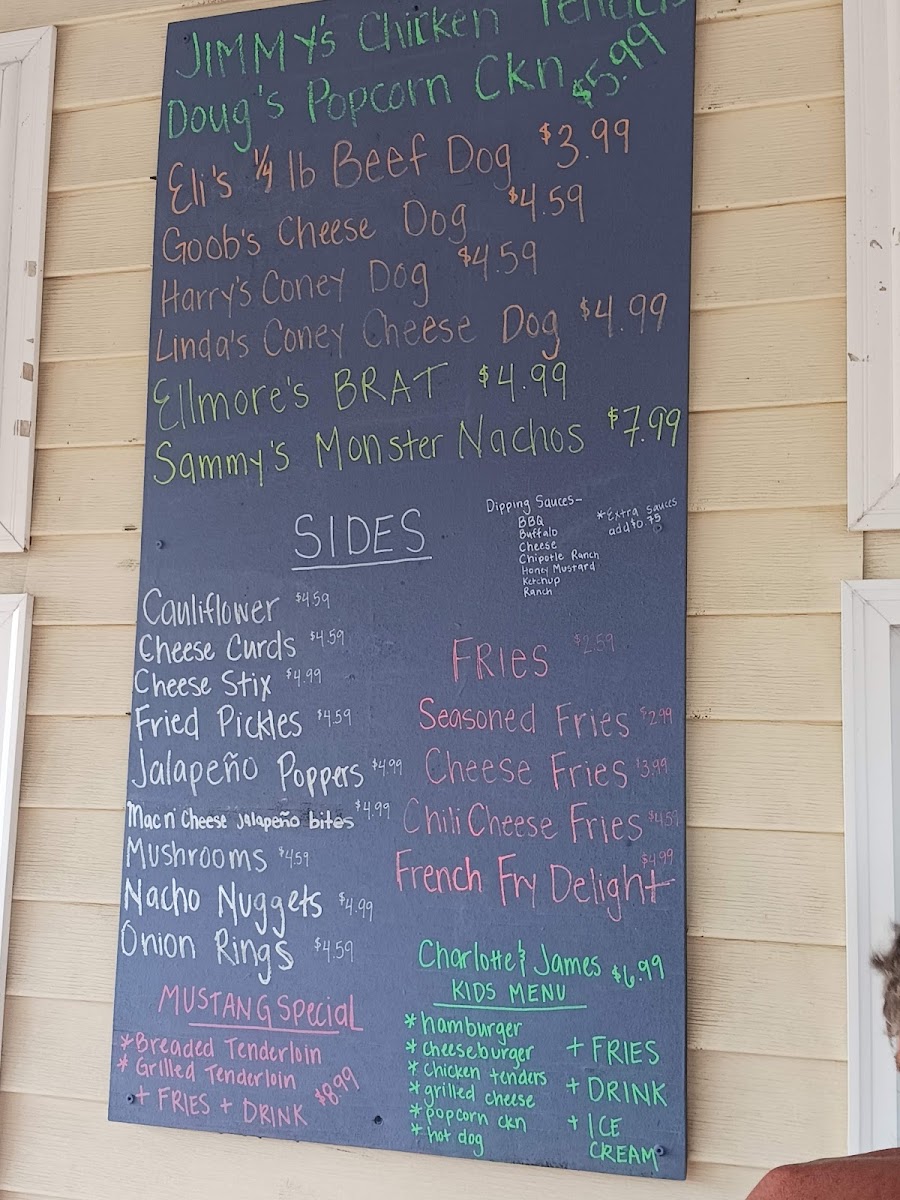 JIMMY's Chicken Tenders
Doug's Popcorn Ckn $5.99
Eli's 1/4 lb Beef Dog $3.99
Goob's Cheese Dog $4.59
Harry's Coney Dog $4.59
Linda's Coney Cheese Dog $4.99
Ellmore's BRAT $4.99
Sammy's Monster Nachos $7.99
Dipping Sauces-
BBQ
Buffalo
Cheese
Chipotle Ranch
Honey Mustard
Ketchup
Ranch
*Extra sauces
add $0.75
SIDES
Cauliflower $4.59
Cheese Curds $4.59
Cheese Stix $4.99
Fried Pickles $4.59
Jalapeño Poppers $4.99
Mac n' Cheese Jalapeño bites $4.99
Mushrooms $4.59
Nacho Nuggets $4.99
Onion Rings $4.59
FRIES $2.59
Seasoned Fries $2.99
Cheese Fries $3.99
Chili Cheese Fries $4.59
French Fry Delight $4.99
MUSTANG Special
*Breaded Tenderloin
*Grilled Tenderloin $8.99
+ FRIES + DRINK
Charlotte & James $6.99
KIDS MENU
*hamburger
*cheeseburger
*chicken tenders
*grilled cheese
*popcorn ckn
*hot dog
+ FRIES
+ DRINK
+ ICE
CREAM